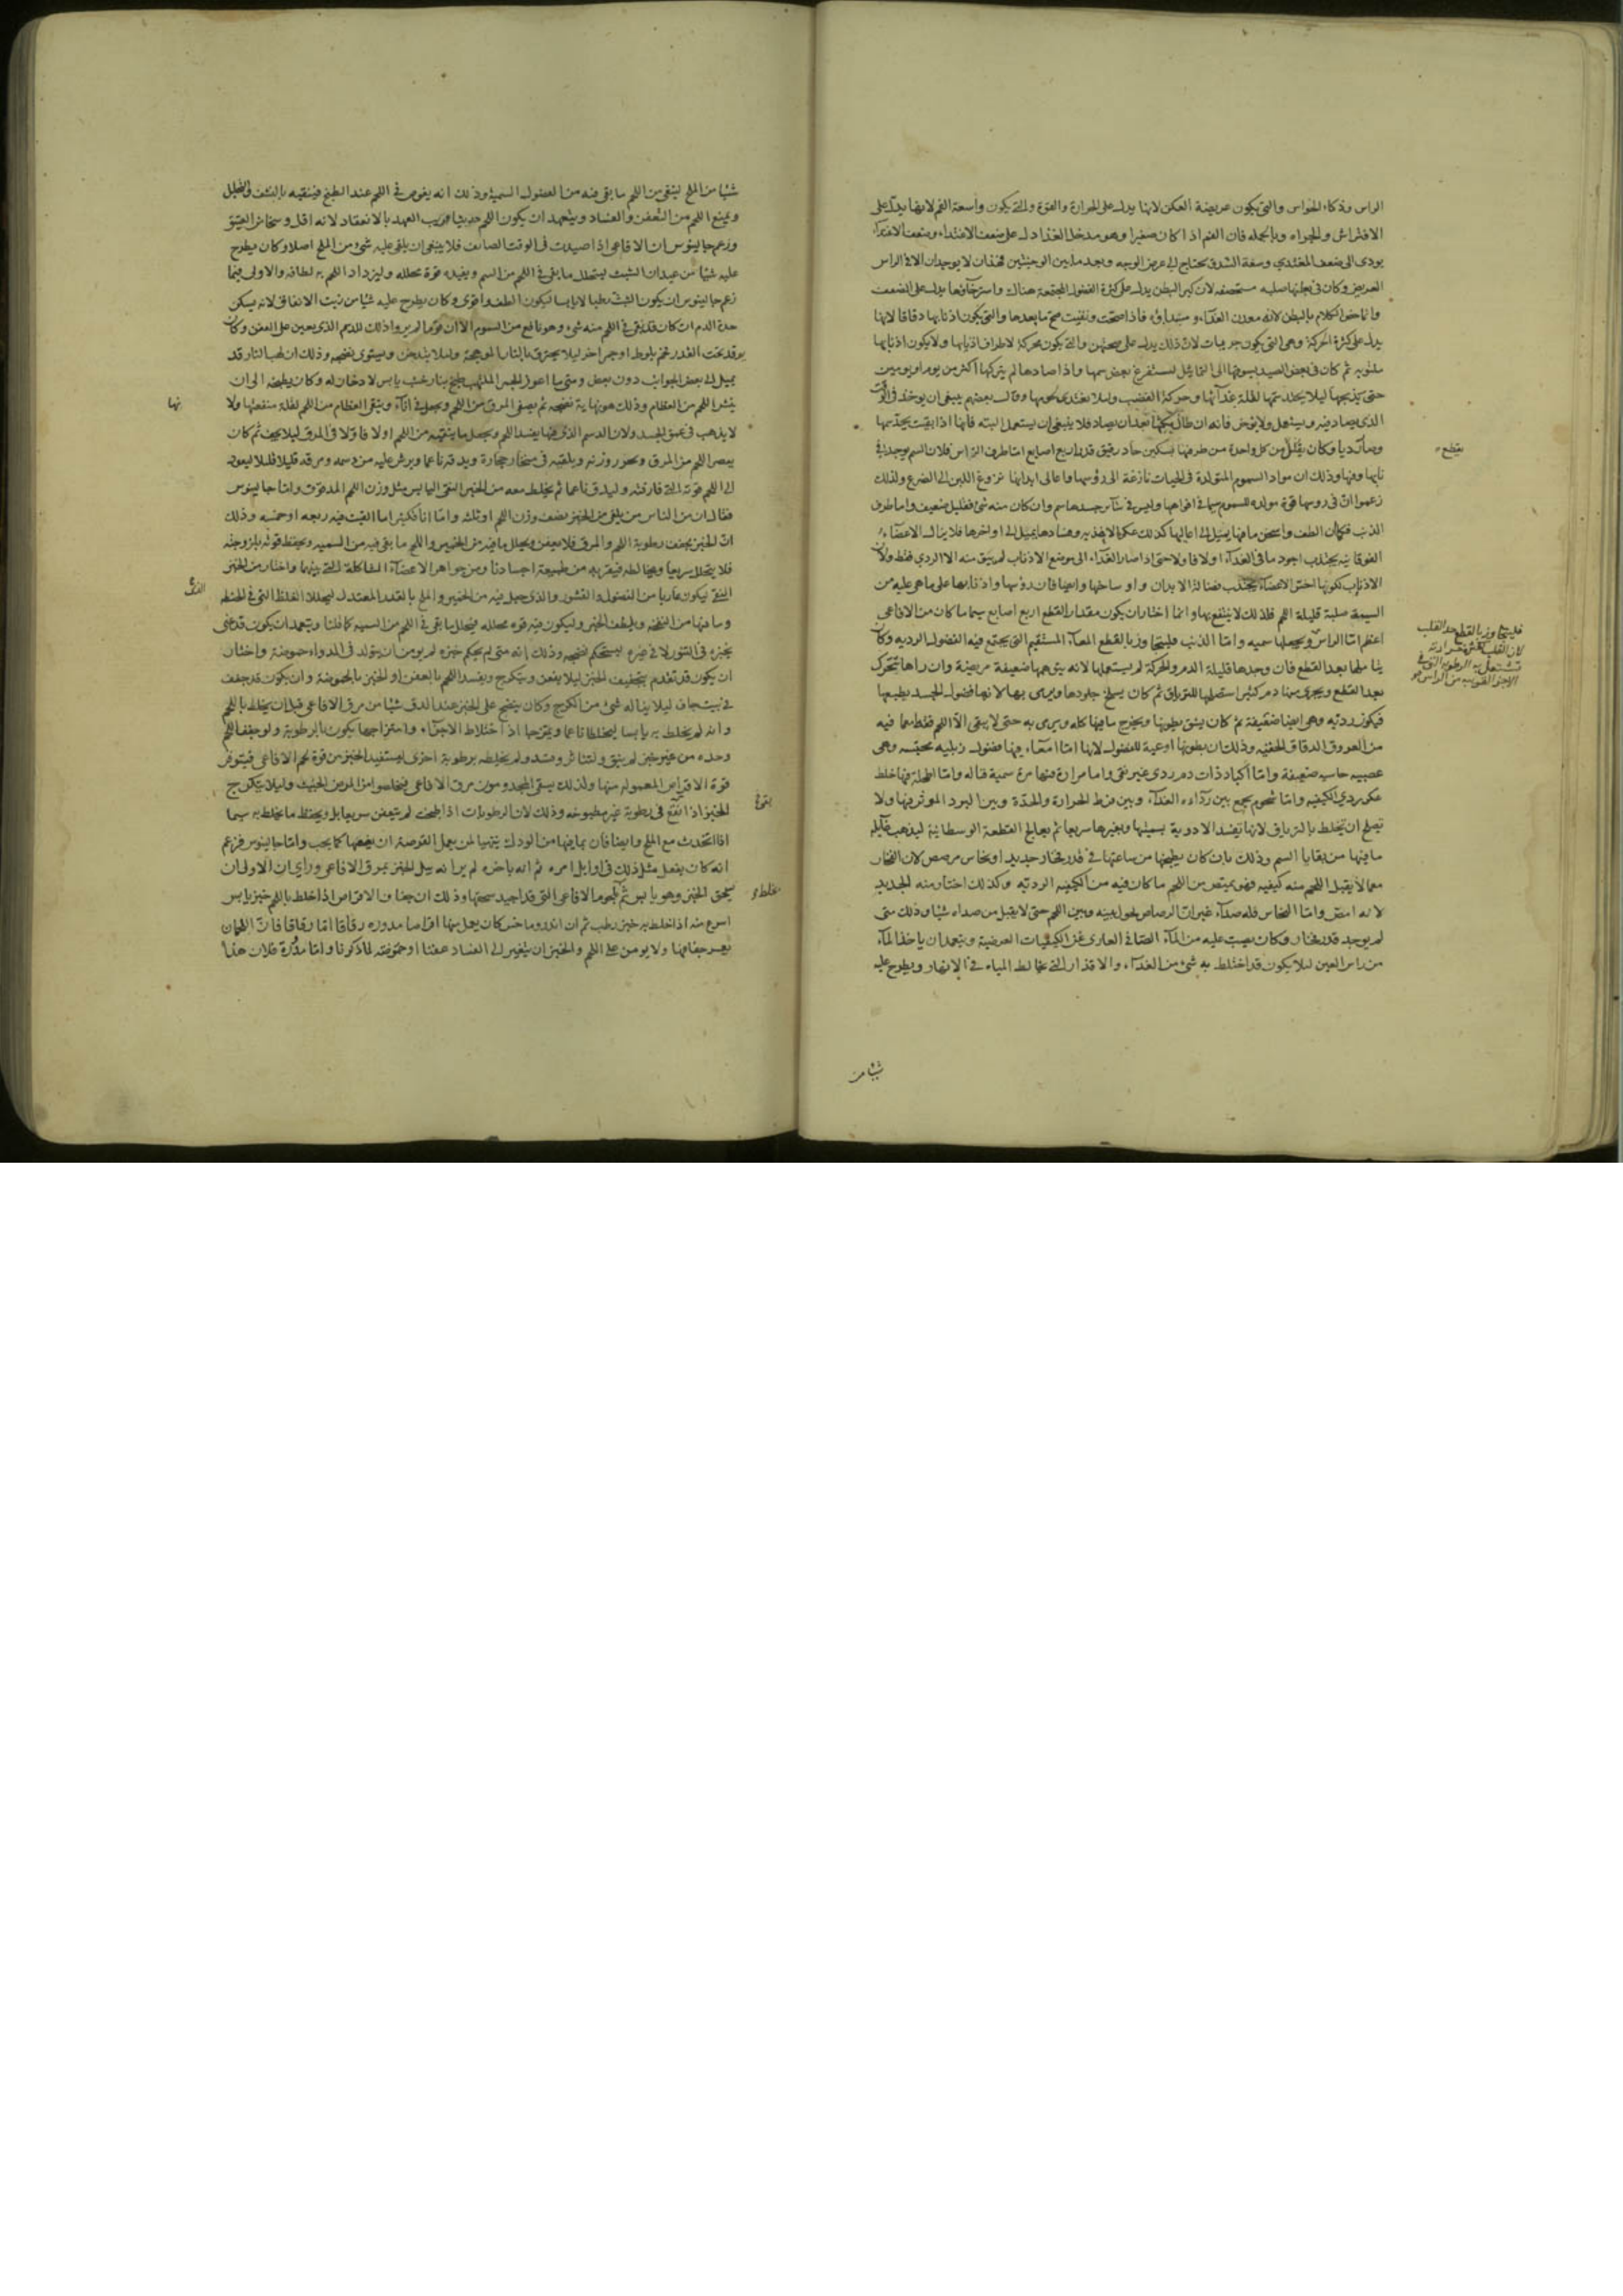 الراس وذكاء الحواس والتي يكون عريضة العكن لانها يدل على الحرارة والقوة والتي يكون واسعة الفم لانها يدل على
الافتراش والجراه وبالجمله فان الفم اذا كان صغيرا وهو مدخل الغذا دل على ضعف الاغتذاء وضعف الاغتذاء
يودى الى ضعف المغتدي وسعة الشدق يحتاج الى عرض الوجه وبعد ما بين الوجنتين فهذان لا يوجدان الا في الراس
العريض وكان في بطنها صلبه مستحصفه لان كبر البطن يدل على كثرة الفضول المجتمعة هناك واسترخاؤها يدل على الضعف
وانما خص الكلام بالبطن لانه معدن الغذاء ومبداؤه فاذا صحت ونقيت صح ما بعدها والتي يكون اذنابها دقاقا لانها
يدل على كثرة الحركة وهي التي يكون جريبات لان ذلك يدل على صحتهن والتي يكون محركة لاطراف اذنابها ولا يكون اذنابها
ملتويه ثم كان في بعض الصيد يسوقها الى القتايل ليستفرغ بعض سمها واذا صادها لم يتركها اكثر من يوم او يومين
حتى يذبحها ليلا يحتد سمها لقلة غذائها وحركة الغضب وليلا يغتدي لحومها وقال بعضهم ينبغي ان يوخذ في الوقت
الذي يصاد فيه ويستعمل ولا يوخر فانه ان طال مكثها بعد ان يصاد فلا ينبغي ان يستعمل البته فانها اذا بقيت يحتد سمها
وصار رديا وكان يقطع من كل واحدة من طرفيها بسكين حاد رقيق قدر اربع اصابع اما طرف الراس فلان السم يوجد في
نابها وفيها وذلك ان مواد السموم المتولدة في الحيات نازعة الى رؤسها واعالى ابدانها نزوع اللبن الى الضرع ولذلك
زعموا ان في رؤسها قوة مولده للسموم سيما في افواهها وليس في سائر جسدها سم وان كان منه شئ فقليل ضعيف واما طرف
الذنب فكما ان الطف واسخن ما فيها يميل الى اعاليها كذلك عكر الاغذيه وفسادها يميل الى اواخرها فلا ينال الاعضاء
الفوقانية يجتذب اجود ما في الغذاء اولا فاولا حتى اذا صار الغذاء الى موضع الاذناب لم يبق منه الا الردي فقط ولان
الاذناب لكونها اخس الاعضاء يجتذب فضالة الابدان واوساخها وايضا فان رؤسها واذنابها على ما هي عليه من
السمية صلبة قليلة اللحم فلذلك لا ينتفع بها وانما اختار ان يكون مقدار القطع اربع اصابع سيما ما كان من الافاعي
اعظم اما الراس ويجعلها سميه واما الذنب فليتجاوز بالقطع المعاء المستقيم التي يجتمع فيه الفضول الرديه وكان
يتاملها بعد القطع فان وجدها قليلة الدم والحركة لم يستعملها لانه يتوهمها ضعيفة مريضة وان راها تتحرك
بعد القطع ويجرى منها دم كثير استعملها للترياق ثم كان يسلخ جلودها ويرمى بها لانها فضول الجسد بطبعها
فيكون رديه وهي ايضا ضعيفة ثم كان يشق بطونها ويخرج ما فيها كله ويرمى به حتى لا يبقى الا اللحم فقط مما فيه
من العروق الدقاق الخفيه وذلك ان بطونها اوعية للفضول لانها اما امعاء فيها فضول زبليه محتبسه وهي
عصبيه جاسيه ضعيفة واما اكباد ذات دم ردي غير نقى واما مرارة فيها مرة سمية قتاله واما اطحلة فيها خلط
عكر ردي الكيفيه واما شحوم يجمع بين رداءه الغذاء وبين فرط الحرارة والحدة وبين البرد الموثر فيها ولا
تصلح ان يختلط بالترياق لانها تفسد الادوية بسببها وبغيرها سريعا ثم يعالج القطعة الوسطانية ليذهب غايلة
ما فيها من بقايا السم وذلك بان كان يطبخها من ساعتها في قدر فخار جديد او نحاس مرصص لان الفخار
مما لا يقبل اللحم منه كيفيه فهو يمتص من اللحم ما كان فيه من الكيفية الرديه وكذلك اختار منه الجديد
لانه امص واما النحاس فله صداء غير ان الرصاص يحول بينه وبين اللحم حتى لا يقبل من صداه شيا وذلك متى
لم يوجد قدر فخار وكان يصب عليه من الماء الصافي العارى عن الكيفيات العرضية ويتعمد ان ياخذ الماء
من راس العين ليلا يكون قد اختلط به شئ من الغذاء والاقذار التي تخالط المياه في الانهار ويطرح عليه
شيا من
يقطع
فليتجاوز بالقطع حد القلب
شيا من الملح لينقى من اللحم ما بقي فيه من الفضول السمية وذلك انه يغوص في اللحم عند الطبخ فينقيه بالنشف والتحليل
ويمنع اللحم من التعفن والفساد ويتعهد ان يكون اللحم حديثا قريب العهد بالانعقاد لانه اقل وسخا من العتيق
وزعم جالينوس ان الافاعي اذا صيدت في الوقت الصائف فلا ينبغي ان يلقى عليه شئ من الملح اصلا وكان يطرح
عليه شيا من عيدان الشبث ليتحلل ما بقي في اللحم من السم ويفيده قوة محلله وليزداد اللحم به لطافه والاولى فيما
زعم جالينوس ان يكون الشبث رطبا لا يابسا ليكون الطف واقوى وكان يطرح عليه شيا من زيت الانفاق لانه يسكن
حدة الدم ان كان قد بقى في اللحم منه شئ وهو نافع من السموم الا ان قوما لم يروا ذلك للدسم الذي يعين على العفن وكان
يوقد تحت القدر فحم بلوط او جمر اخر ليلا يحترق بالنار الموججة وليلا يتدخن ويستوى نضجه وذلك ان لهب النار قد
يميل الى بعض الجوانب دون بعض ومتى ما اعوز الجمر الملتهب طبخ بنار خشب يابس لا دخان له وكان يطبخه الى ان
ينشر اللحم من العظام وذلك هو نهاية نضجه ثم يصفى المرق من اللحم ويجعل في اناء وينقى العظام من اللحم لقلة منفعتها ولا
لا يذهب في عمق الجسد ولان الدسم الذي فيها يفسد اللحم ويجعل ما ينقيه من اللحم اولا فاولا في المرق ليلا يجف ثم كان
يعصر اللحم من المرق ويحرر وزنه ويلقيه في منحاز حجارة ويدقه ناعما ويرش عليه من دسمه ومرقه قليلا قليلا ليعود
الى اللحم قوته التي فارقته وليدق ناعما ثم يخلط معه من الخبز النقى اليابس مثل وزن اللحم المدقوق واما جالينوس
فقال ان من الناس من يلقى من الخبز نصف وزن اللحم او ثلثه واما انا فكثيرا ما القيت فيه ربعه او خمسه وذلك
ان الخبز يجفف رطوبة اللحم والمرق فلا يعفن ويحلل ما فيه من الخمير والملح ما بقى فيه من السمية ويحفظ قوته بلزوجته
فلا يتحلل سريعا ويخالطه فيقربه من طبيعة اجسادنا ومن جواهر الاعضاء المشاكلة التي بينهما واختار من الخبز
النقى ليكون عاريا من الفضول والقشور والذي جعل فيه من الخمير والملح بالقدر المعتدل ليحللان الغلظ التي في الحنطه
وما فيها من النفخة ويلطف الخبز وليكون فيه قوة محلله فيحلل ما بقى في اللحم من السمية كما قلنا ويتعمد ان يكون قد عنى
بخبزه في التنور لا في غيره ليستحكم نضجه وذلك انه متى لم يحكم خبزه لم يومن ان يتولد في الدواء حموضة واختار
ان يكون قد تقدم بتجفيف الخبز ليلا يتعفن ويتكرج ويفسد اللحم بالعفن او الخبز بالحموضة وان يكون قد جفف
في بيت جاف ليلا يناله شئ من الكرج وكان ينضح على الخبز عند الدق شيا من مرق الافاعي قبل ان يخلط باللحم
وانه لم يخلط به يابسا ليختلطا ناعما ويمتزجا اذ اختلاط الاجزاء وامتزاجها يكون بالرطوبة ولو جفف اللحم
وحده من غير خبز لم يبق ولتناثر وفسد ولم يخلطه برطوبة اخرى ليستفيد الخبز من قوة لحم الافاعي فيتوفر
قوة الاقراص المعموله منها ولذلك يسقى المجذومون مرق الافاعي فيتخلصوا من المرض الخبيث وليلا يتكرج
الخبز اذا انقع في رطوبة غير مطبوخه وذلك لان الرطوبات اذا طبخت لم يتعفن سريعا بل ويحفظ ما يخلط به سيما
اذا اتخذت مع الملح وايضا فان بما فيها من الودك يتهيا لمن يعمل القرصة ان يضعها كما يجب واما جالينوس فزعم
انه كان يفعل مثل ذلك في اوايل امره ثم انه باخره لم ير انه يبل الخبز بمرق الافاعي وراى ان الاولى ان
يسحق الخبز وهو يابس ثم بلحوم الافاعي التي قد اجيد سحقها وذلك ان جفاف الاقراص اذا خلط باللحم خبز يابس
اسرع منه اذا خلط به خبز رطب ثم ان اندروماخس كان يعمل منها اقراصا مدوره رقاقا اما رقاقا فان اللحمان
يعسر جفافها ولا يومن على اللحم والخبز ان يتغير الى الفساد عفنا او حموضه لما ذكرنا واما مدورة فلان هذا
نها